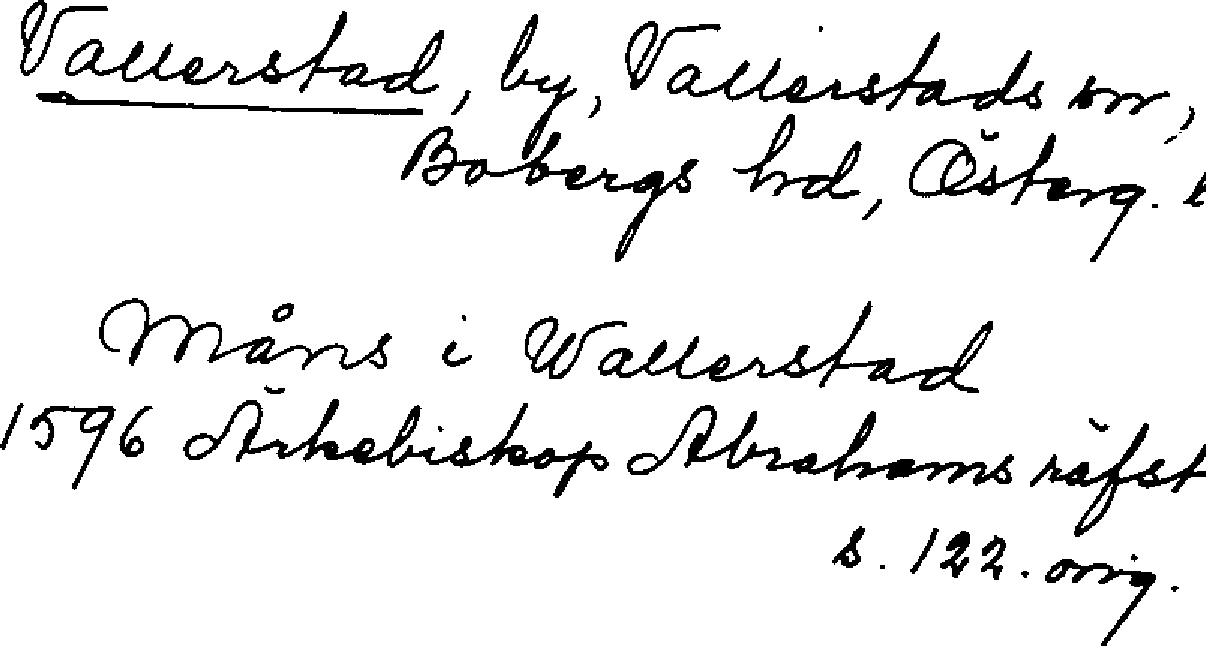 Vallerstad, by, Vallerstads sn,
Bobergs hd, Österg. l
Måns i Wallerstad
1596 Ärkebiskop Abrahams räfst
s. 122. orig.